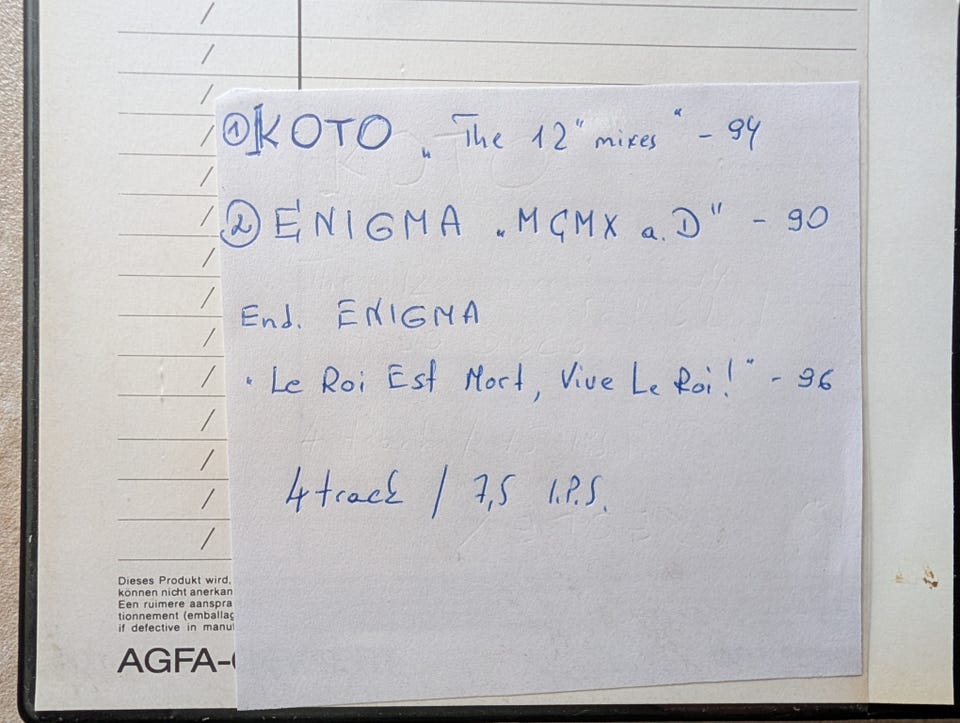 ① KOTO „The 12" mixes" - 94
② ENIGMA „MCMX a.D" - 90
End. ENIGMA
"Le Roi Est Mort, Vive Le Roi!" - 96
4 track / 7,5 I.P.S.
Dieses Produkt wird,
können nicht anerkan
Een ruimere aanspra
tionnement (emballag
if defective in manu
AGFA-